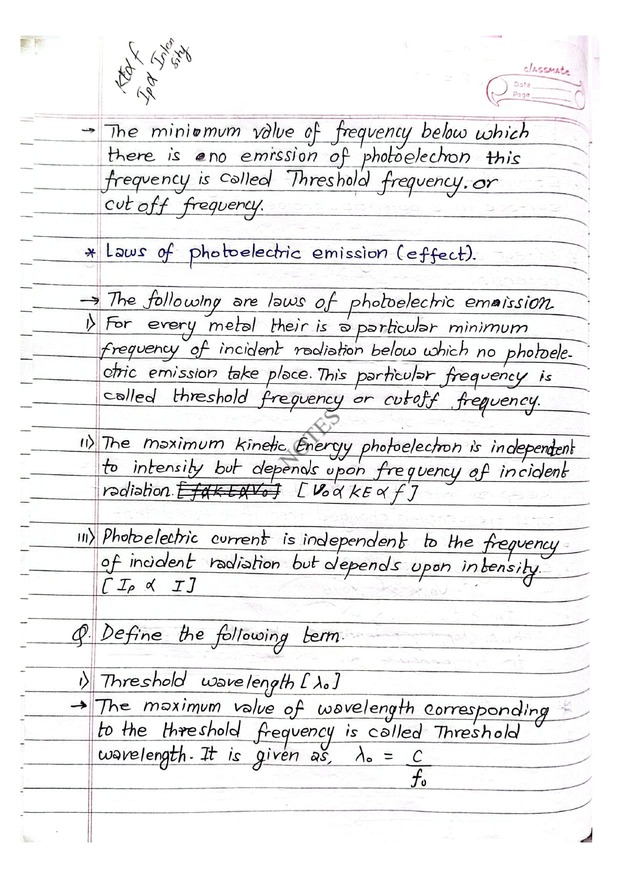 KE α f
Ip α Inten
sity
classmate
Date
Page
→ The minimum value of frequency below which
there is no emission of photoelectron this
frequency is called Threshold frequency. or
cut off frequency.
* Laws of photoelectric emission (effect).
→ The following are laws of photoelectric emission
i) For every metal their is a particular minimum
frequency of incident radiation below which no photoele-
ctric emission take place. This particular frequency is
called threshold frequency or cutoff frequency.
NOTES
ii) The maximum kinetic Energy photoelectron is independent
to intensity but depends upon frequency of incident
radiation. [f α KE α V₀] [V₀ α KE α f]
iii) Photoelectric current is independent to the frequency
of incident radiation but depends upon intensity.
[Ip α I]
Q. Define the following term.
i) Threshold wavelength [λ₀]
→ The maximum value of wavelength corresponding
to the threshold frequency is called Threshold
wavelength. It is given as, λ₀ = C
f₀